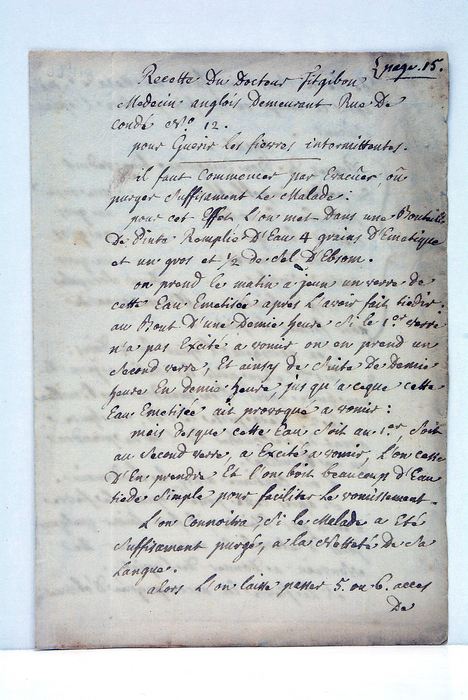 {page. 15.
Recette Du Docteur Fitgibon
Medecin anglois Demeurant Rue De
Condé No 12.
pour Guerir Les fievres intermittentes.
il faut Commencer par Evacüer, oü
purger Suffisament Le Malade:
pour cet Effet L'on met Dans une Bouteille
De Pinte Remplie D'Eau 4 grains D'Emetique
et un gros et 1/2 de Sel D'Ebsom.
on prend le matin a jeun un verre de
cette Eau Emetisée après L'avoir fait tiedir:
au Bout D'une Demie heure Si le 1er verre
n'a pas Excité a vomir on en prend un
Second verre, Et ainsy de Suite De Demie
heure En demie heure, jusqu'a ceque cette
Eau Emetisée ait provoqué a vomir:
mais desque cette Eau Soit au 1er, Soit
au Second verre, a Excité a vomir, L'on cesse
D'En prendre Et l'on boit beaucoup d'Eau
tiede Simple pour faciliter Le vomissement
L'on Connoitra, Si le Malade a Eté
Suffisament purgé, a la Netteté De Sa
Langue.
alors L'on laisse passer 5. ou 6. acces
De